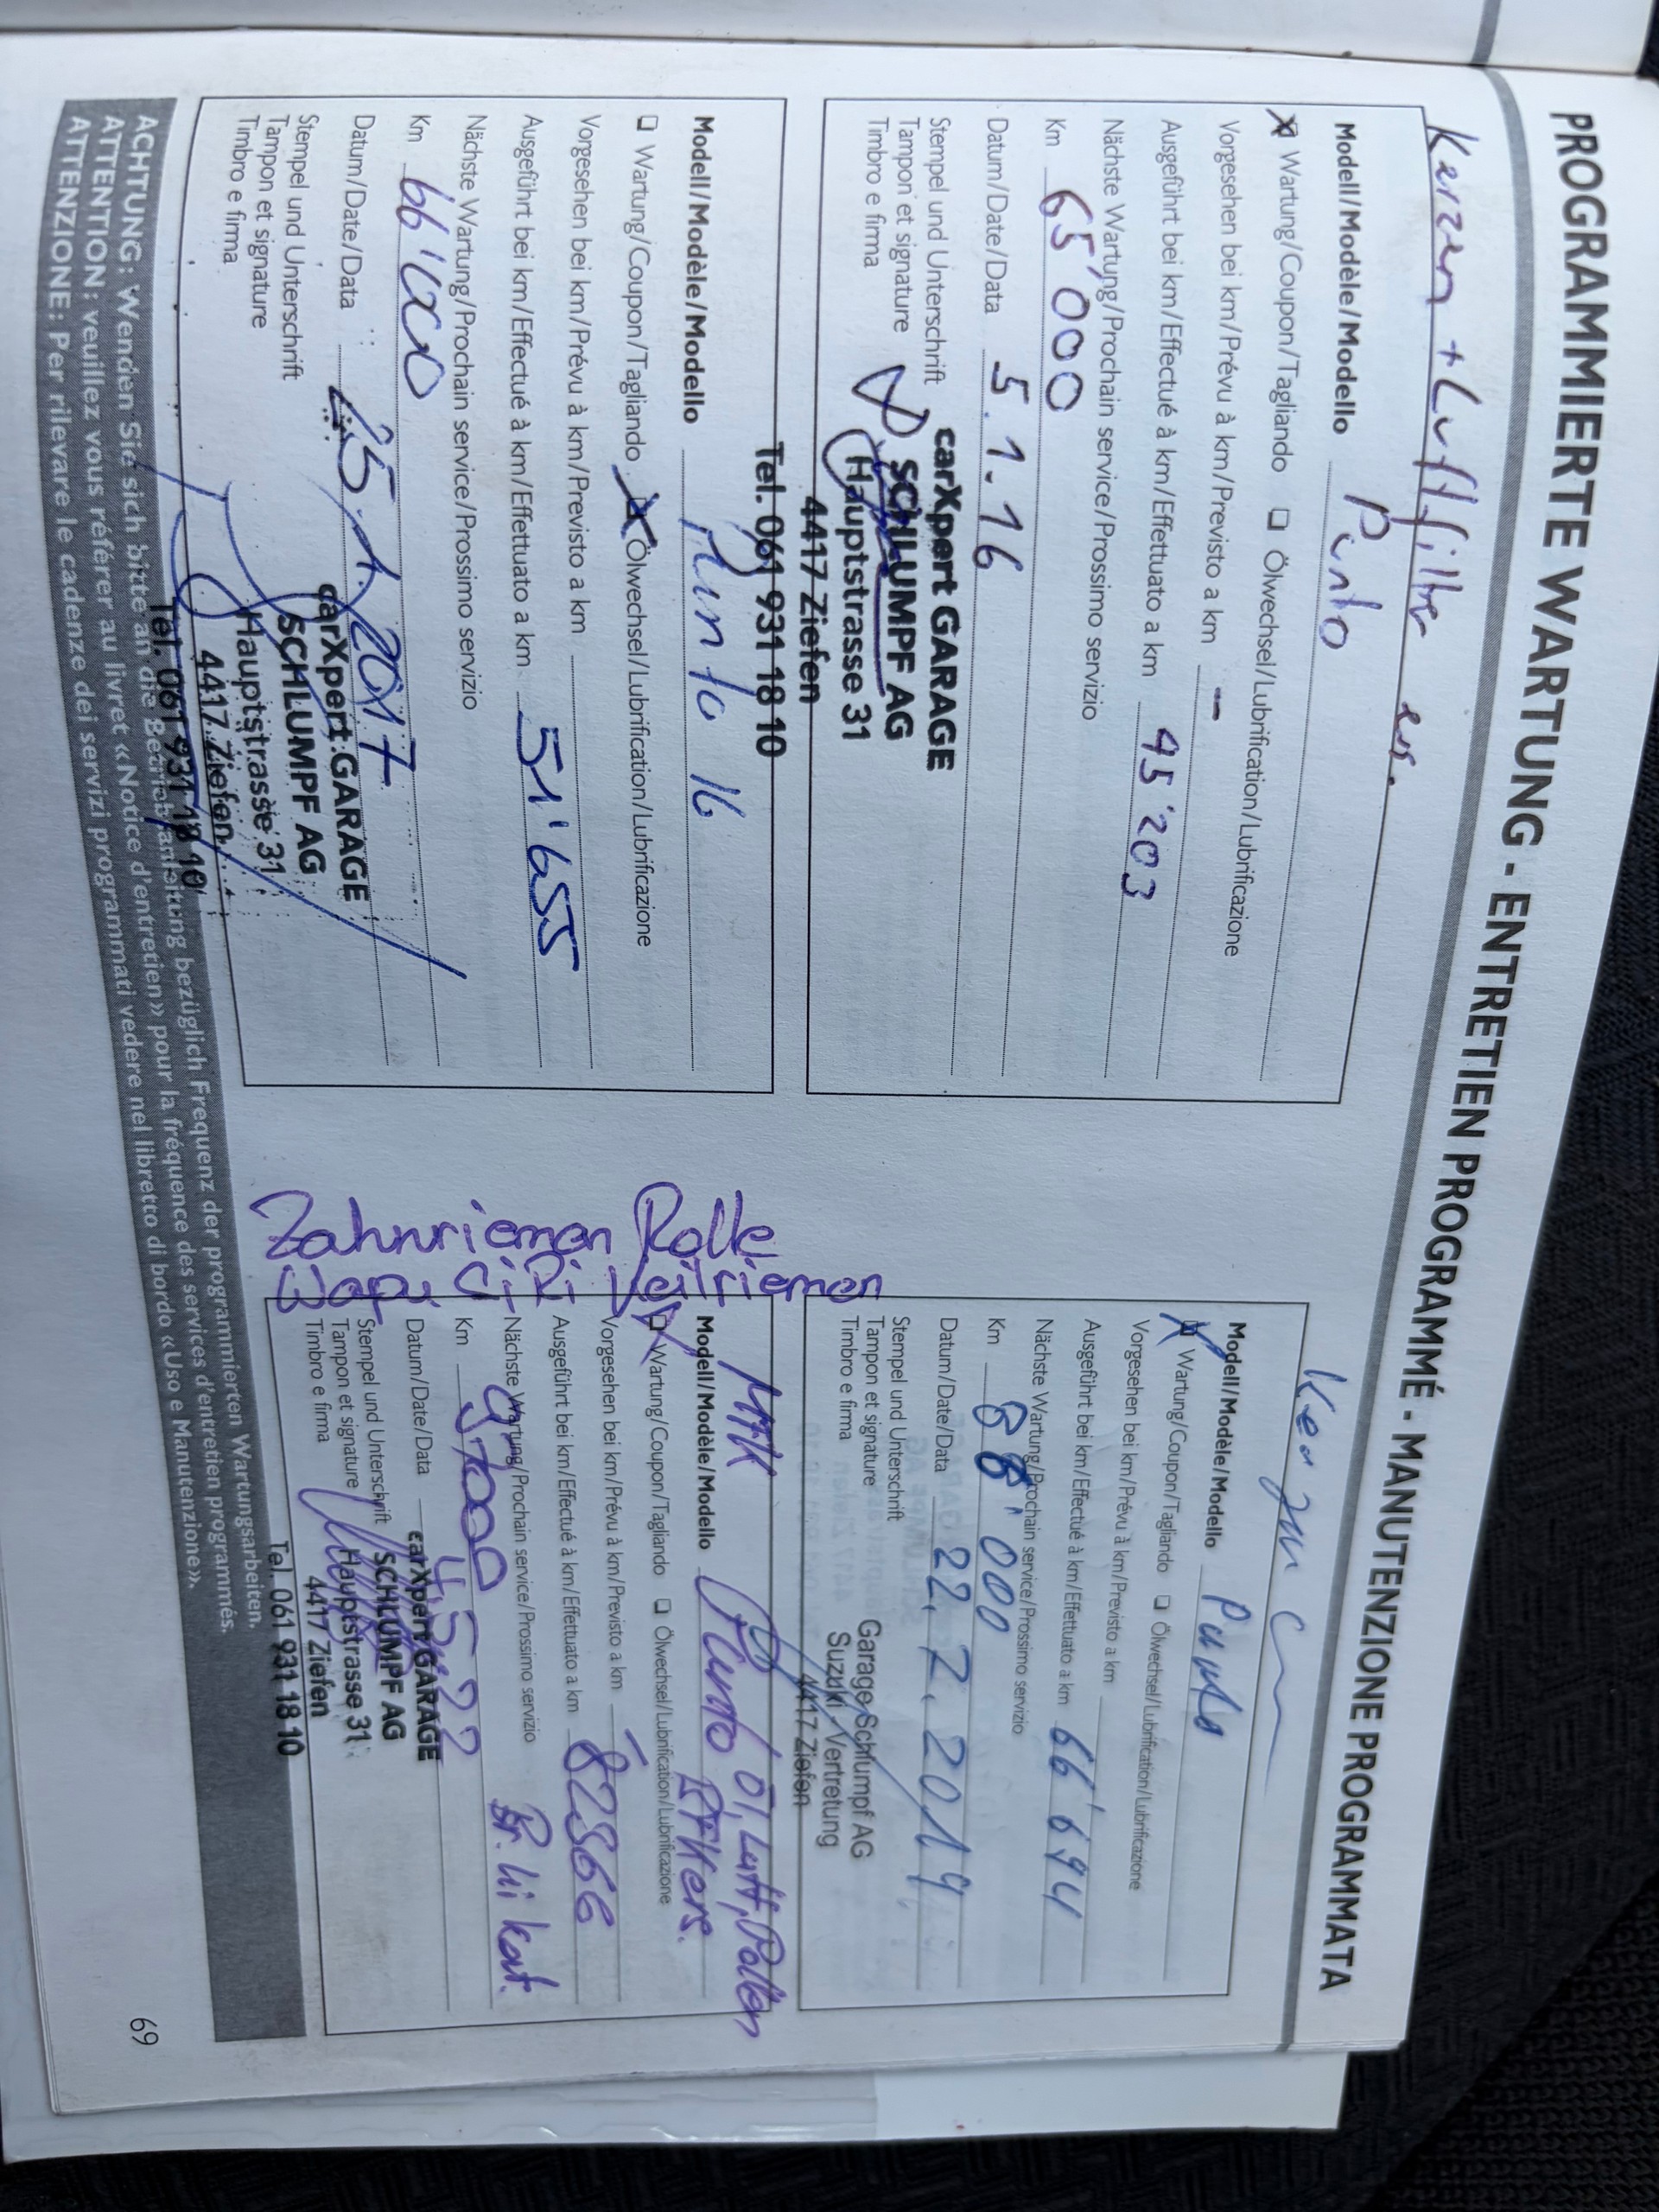 PROGRAMMIERTE WARTUNG - ENTRETIEN PROGRAMMÉ - MANUTENZIONE PROGRAMMATA
Kerzen + Luftfilter ers.
Modell/Modèle/Modello Punto
Wartung/Coupon/Tagliando Ölwechsel/Lubrification/Lubrificazione
Vorgesehen bei km/Prévu à km/Previsto a km –
Ausgeführt bei km/Effectué à km/Effettuato a km 45'203
Nächste Wartung/Prochain service/Prossimo servizio
Km 65'000
Datum/Date/Data 5.1.16
Stempel und Unterschrift
Tampon et signature
Timbro e firma
carXpert GARAGE
SCHLUMPF AG
Hauptstrasse 31
4417 Ziefen
Tel. 061 931 18 10
Modell/Modèle/Modello Punto 16
Wartung/Coupon/Tagliando Ölwechsel/Lubrification/Lubrificazione
Vorgesehen bei km/Prévu à km/Previsto a km
Ausgeführt bei km/Effectué à km/Effettuato a km 51'655
Nächste Wartung/Prochain service/Prossimo servizio
Km 66'000
Datum/Date/Data 25.1.2017
Stempel und Unterschrift
Tampon et signature
Timbro e firma
carXpert GARAGE
SCHLUMPF AG
Hauptstrasse 31
4417 Ziefen
Tel. 061 931 18 10
Kerzen
Modell/Modèle/Modello Punto
Wartung/Coupon/Tagliando Ölwechsel/Lubrification/Lubrificazione
Vorgesehen bei km/Prévu à km/Previsto a km
Ausgeführt bei km/Effectué à km/Effettuato a km 66'694
Nächste Wartung/Prochain service/Prossimo servizio
Km 88'000
Datum/Date/Data 22.7.2019
Stempel und Unterschrift
Tampon et signature
Timbro e firma
Garage Schlumpf AG
Suzuki Vertretung
4417 Ziefen
MFK Öl, Luft, Pollen
Modell/Modèle/Modello Punto ers.
Wartung/Coupon/Tagliando Ölwechsel/Lubrification/Lubrificazione
Vorgesehen bei km/Prévu à km/Previsto a km –
Ausgeführt bei km/Effectué à km/Effettuato a km 82566
Nächste Wartung/Prochain service/Prossimo servizio Br. hi kont.
Km 97000
Datum/Date/Data 4.5.22
Stempel und Unterschrift
Tampon et signature
Timbro e firma
carXpert GARAGE
SCHLUMPF AG
Hauptstrasse 31
4417 Ziefen
Tel. 061 931 18 10
Zahnriemen Rolle
Wapu Keilriemen
ACHTUNG: Wenden Sie sich bitte an die Betriebsanleitung bezüglich Frequenz der programmierten Wartungsarbeiten.
ATTENTION: veuillez vous référer au livret «Notice d'entretien» pour la fréquence des services d'entretien programmés.
ATTENZIONE: Per rilevare le cadenze dei servizi programmati vedere nel libretto di bordo «Uso e Manutenzione».
69